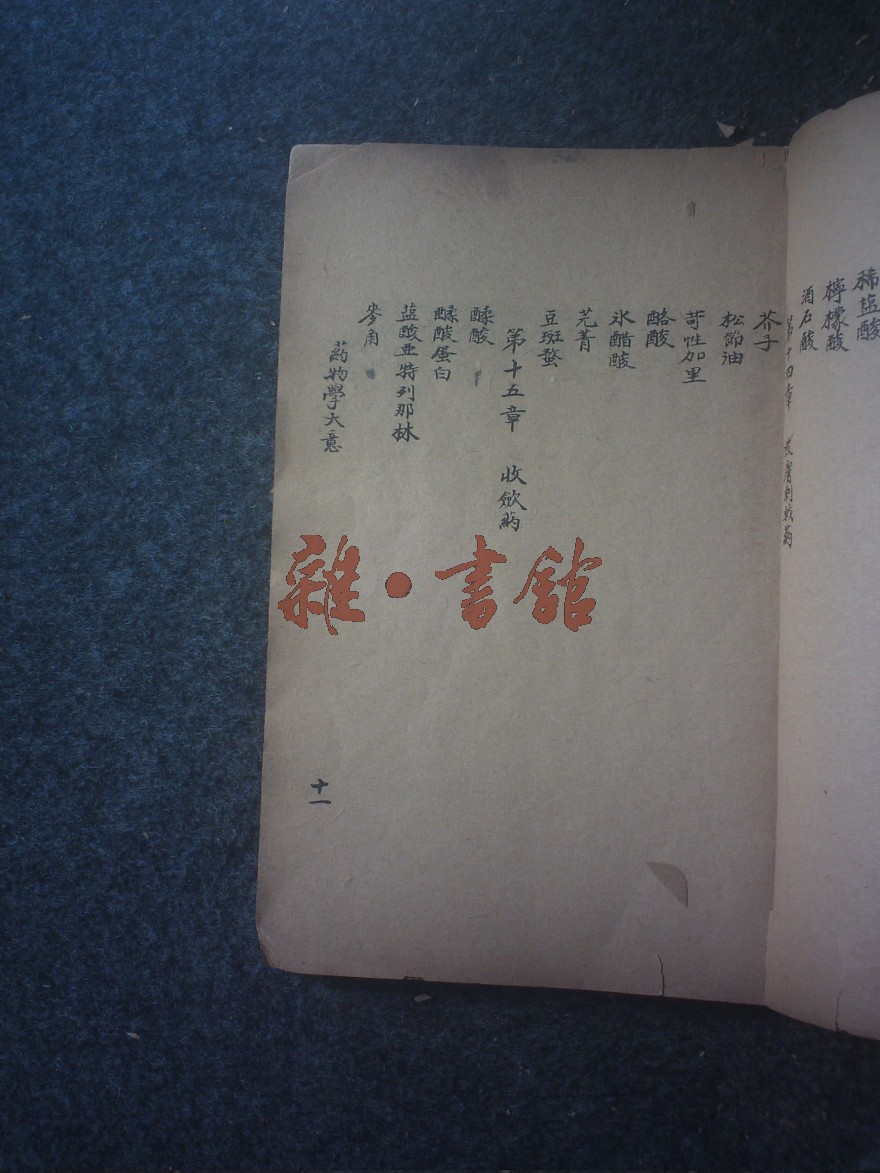 稀盐酸
檸檬酸
酒石酸
第十四章 皮膚刺戟葯
芥子
松節油
苛性加里
酪酸
氷醋酸
芫菁
豆斑蝥
第十五章 收歛葯
鞣酸
鞣酸蛋白
盐酸亚特列那林
麥角
葯物學大意
十一
雜·書館